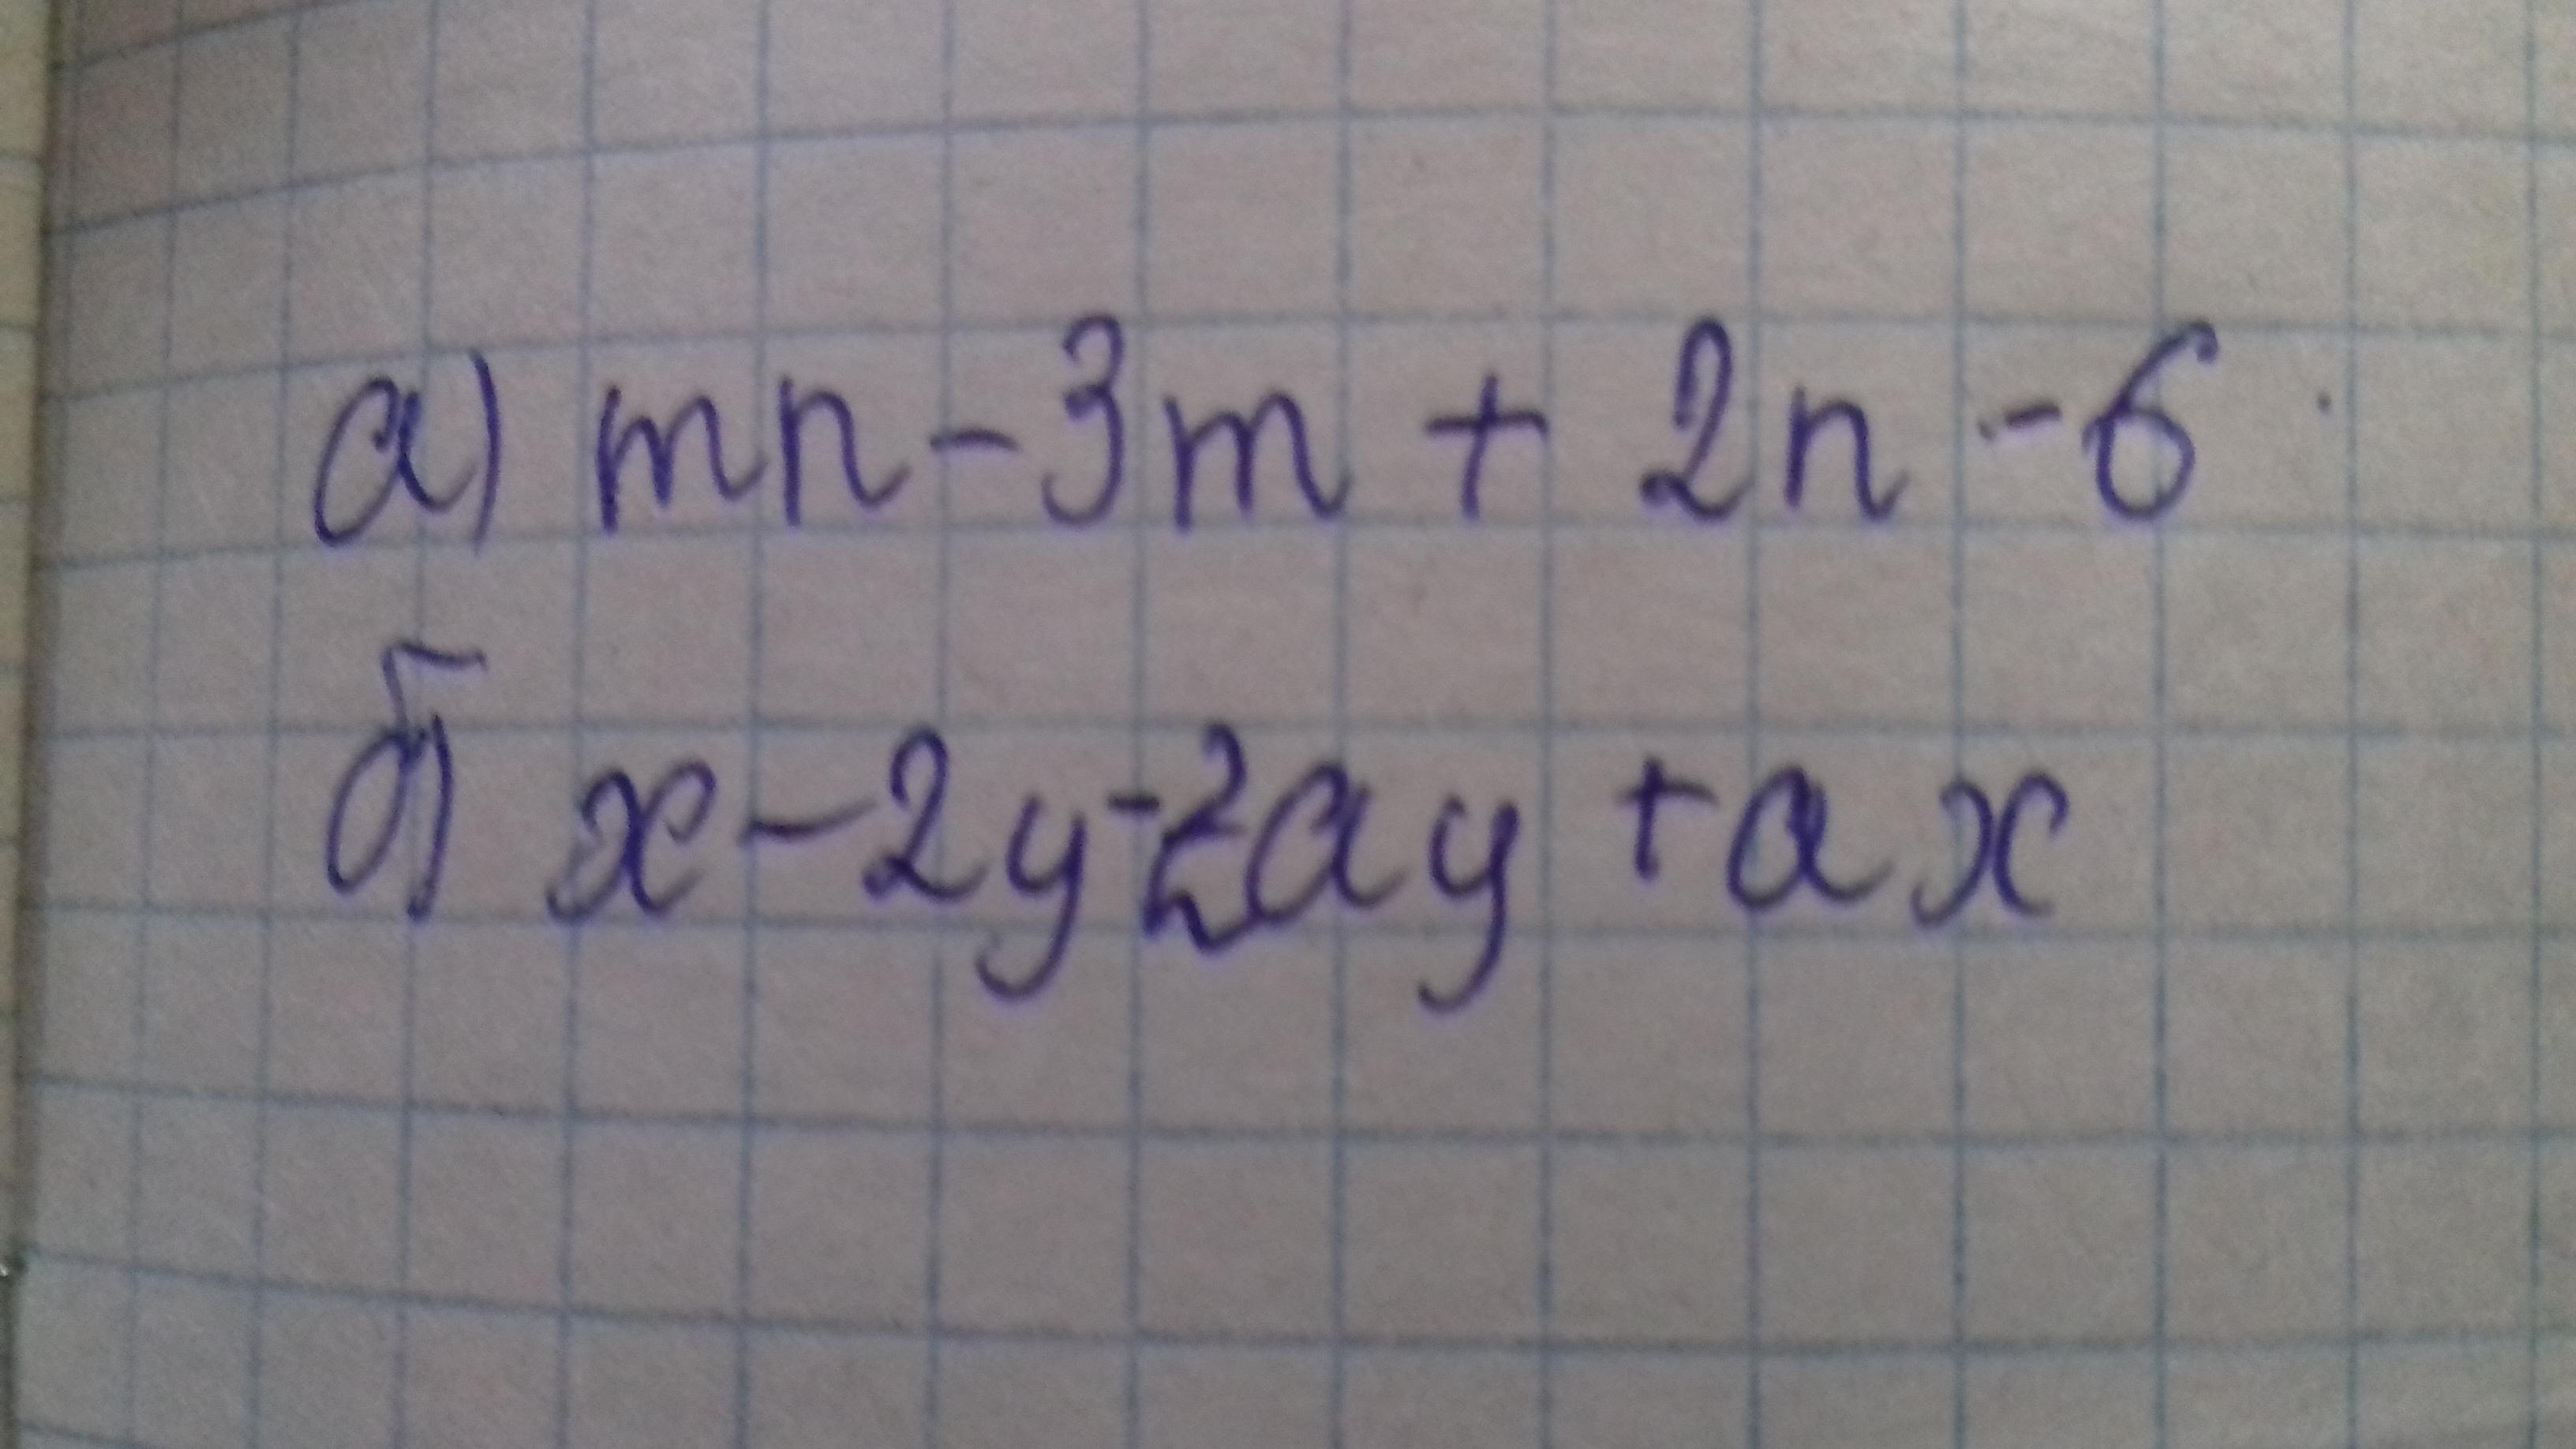 а) mn - 3m + 2n - 6
б) x - 2y - 2ay + ax